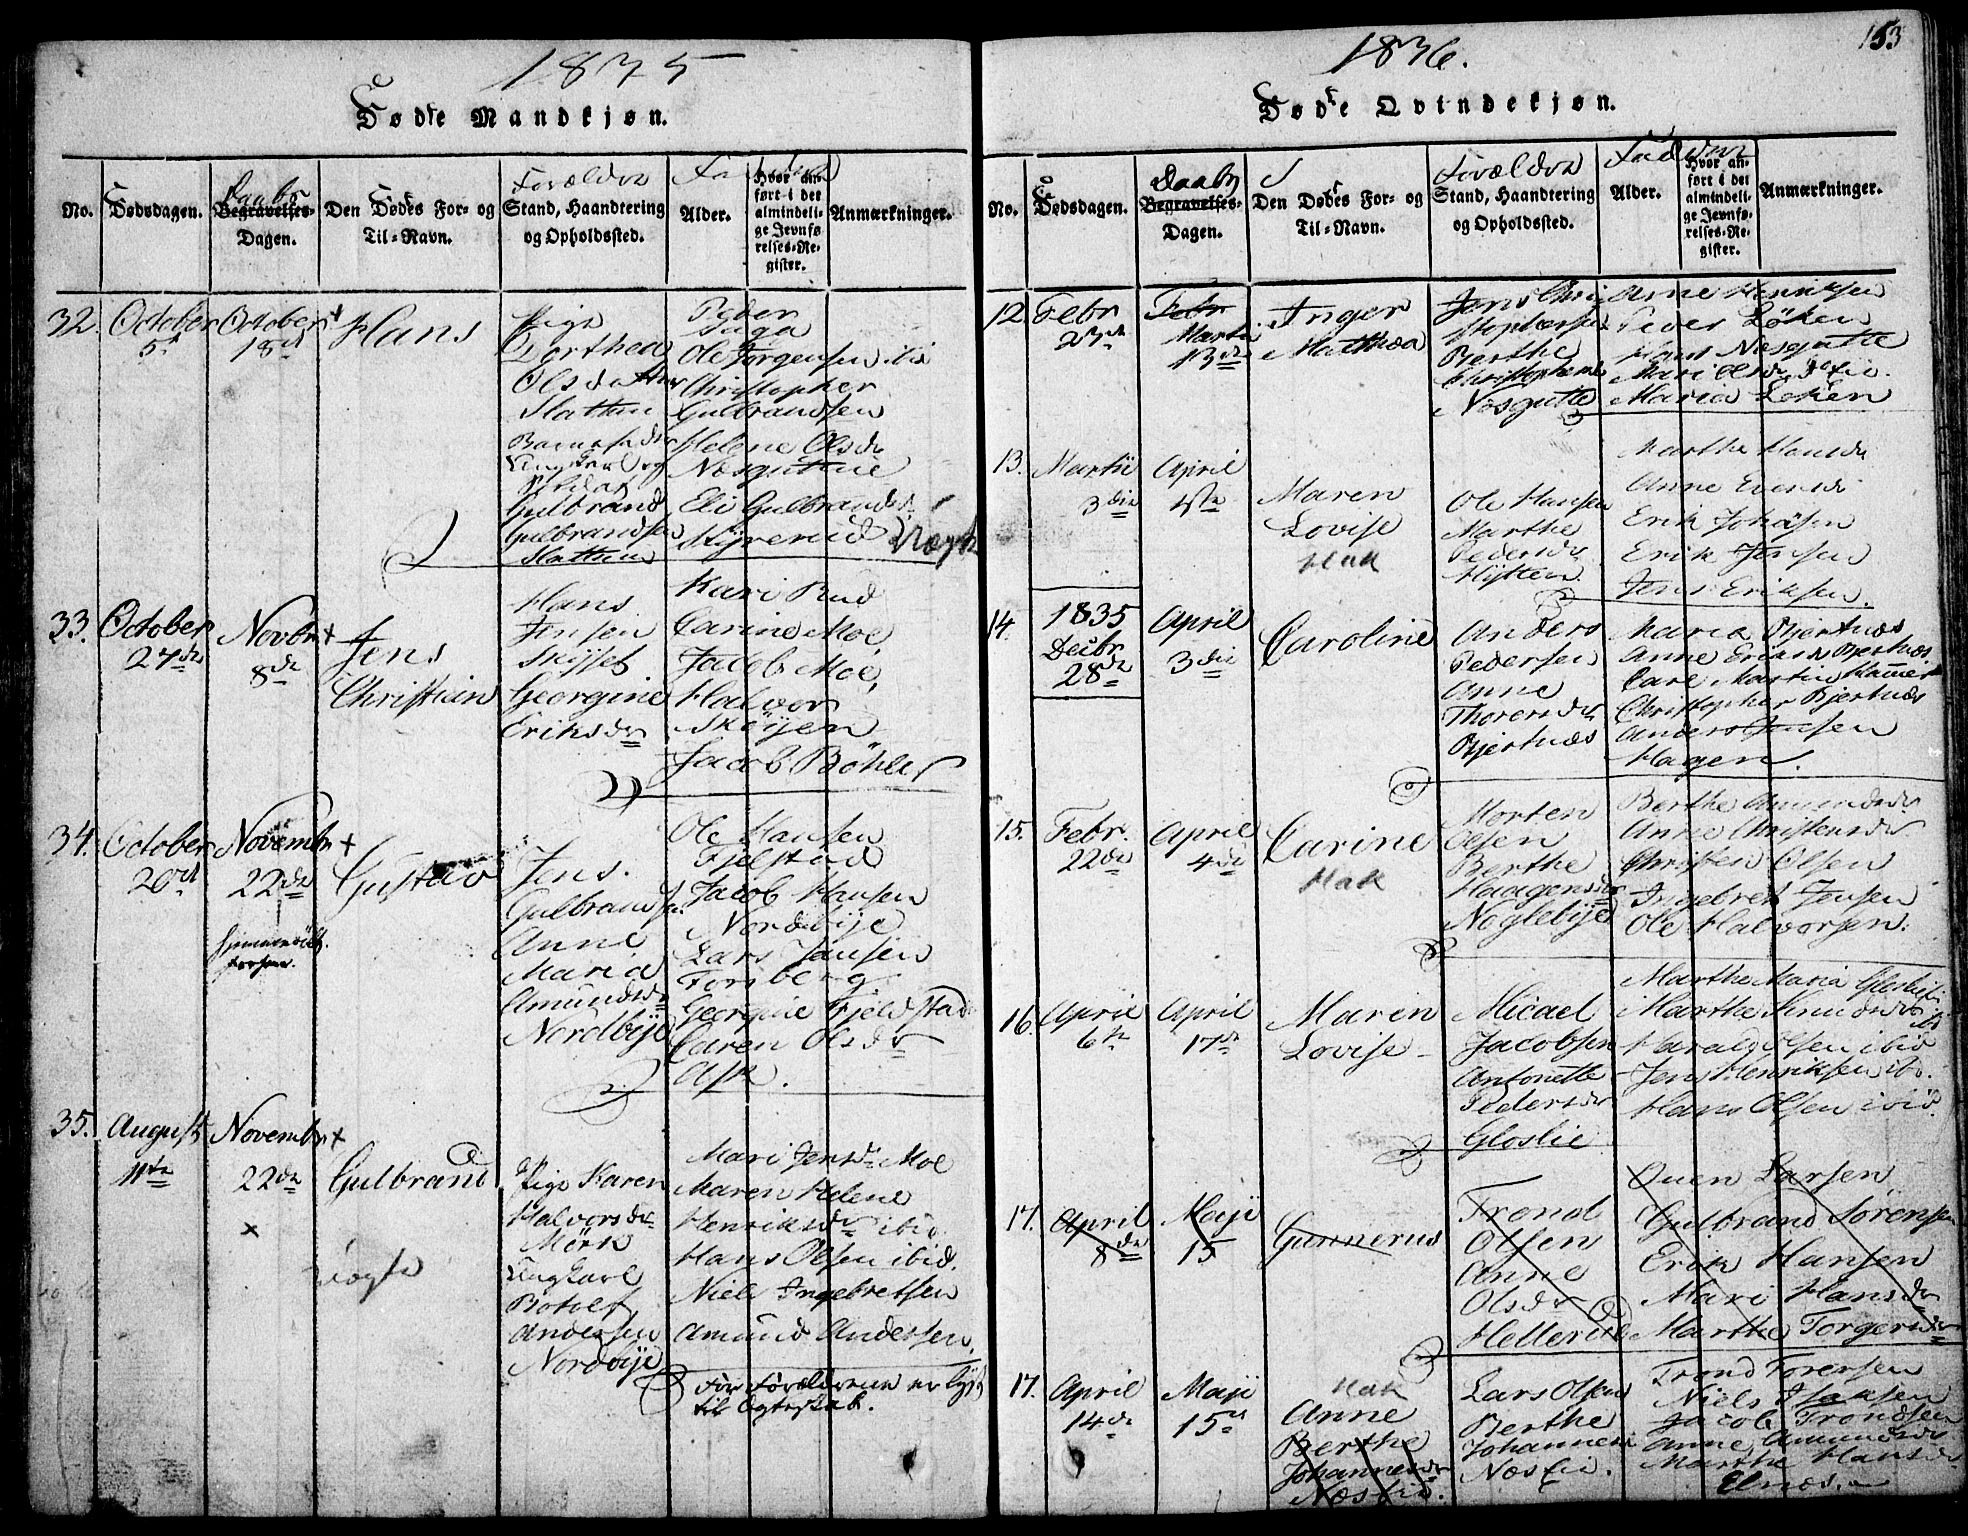 1835
Fødte Mandkjøn.
No.
Dødsdagen.
Daabs
Begravelses-
Dagen.
Den Dødes For- og
Til-Navn.
Forældre
Stand, Haandtering
og Opholdssted.
Alder.
Hvor an-
ført i det
almindeli-
ge Jevnfø-
relses-Re-
gister.
Anmærkninger.
32.
October
5te
October
18de
Hans
Pige
Dorthea
Olsdatter
Slattum
Ungkarl og
Soldat
Gulbrand
Gulbrandsen
Slattum
Peder
Ole Jørgensen ibid
Christopher
Gulbrandsen
Helene Olsdr
Eli Gulbrandsdr
33.
October
27de
Novbr
8de
Jens
Christian
Hans
Jensen
Skysset
Georgine
Eriksdr
Kari Rud
Carine Moe,
Jacob Moe,
Halvor
Skøyen
Jacob Bøhler
34.
October
20de
Novembr
22de
Gustav
Jens
Gulbrandsen
Anne
Maria
Amundsdr
Nordbye
Ole Hansen
Fjelstad
Jacob Hansen
Nordbye
Lars Jansen
Forsberg
Georgine Fjeldstad
Caren Olsdr
Ask.
35.
August
11te
Novembr
22de
Gulbrand
Pige Karen
Halvorsdr
Mørk
Ungkarl
Botolf
Andersen
Nordbye
Mari Jensdr Moe
Maren Helene
Henriksdr ibid
Hans Olsen ibid.
Niels Ingebretsen
Amund Andersen,
For Forældrene er lyst
til Ægteskab.
1836.
153
Fødte Qvindekjøn.
No.
Dødsdagen.
Daabs
Begravelses-
Dagen.
Den Dødes For- og
Til-Navn.
Forældre
Stand, Haandtering
og Opholdssted.
Faddere
Alder.
Hvor an-
ført i det
almindeli-
ge Jevnfø-
relses-Re-
gister.
Anmærkninger.
12.
Febr
23de
Febr
Martii
13de
Inger
Mathea
Jens Chri
stophersen
Berthe
Næsgutte
Anne Henriksen
Peder Løken
Hans Næsgutte
Maria Løken
13.
Martii
3die
April
4de
Maren
Lovise
Hak
Ole Hansen
Marthe
Pedersdr
Hytten
Marthe Hansdr
Anne Evensdr
Erik Johansen
Erik Jensen
Jens Eriksen.
14.
1835
Decbr
28de
April
3die
Caroline
Anders
Pedersen
Anne
Thorersdr
Bjertnæs
Maria Bjertnæs
Anne Eriksdr Bjertnæs
Carl Martin Hammer
Christopher Bjertnæs
Anders Jensen
Hagen.
15.
Febr.
22de
April
4de
Carine
Hak
Morten
Olsen
Berthe
Haagensdr
Noglebye
Berthe Amundsdr
Anne Christensdr
Christen Olsen
Ingebret Jensen
Ole Halvorsen.
16.
April
6te
April
17de
Maren
Lovise
Micael
Jacobsen
Antonette
Pedersdr
Gloslie
Marthe Maria Gloslie
Marthe Knudsdr
ibid
Harald Olsen ibid
Jens Henriksen ibd.
Hans Olsen ibid.
17.
April
8de
Maji
15
Gunnerus
Trond
Olsen
Anne
Olsdr
Hellerud
Ouen Larsen
Gulbrand Sørensen
Erik Hansen
Mari Hansdr
Marthe Torgersdr
17.
April
14de
Maji
15de
Hak
Anne
Berthe
Johannesdr
Næslie.
Lars Olsen
Berthe
Johannesdr
Næslie.
Trond Torersen
Niels Isaksen
Jacob Trondsen
Anne Amundsdr
Marthe Hansdr
Elnæs.